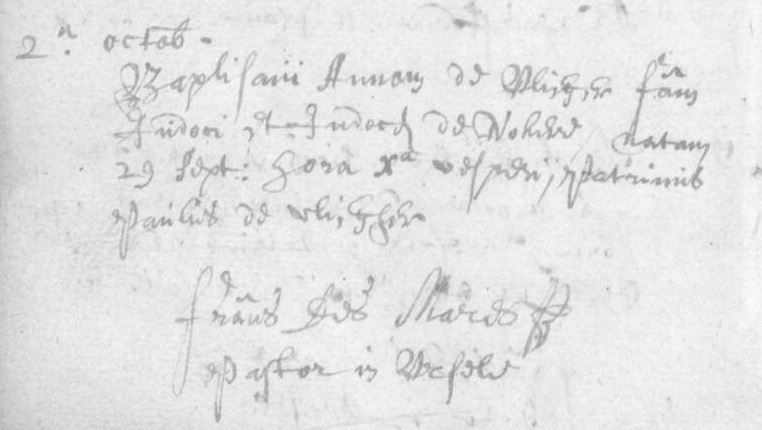 2a octob.
Baptisavi Annam de Vligher fam
Judoci et Judocę de Volder natam
29 Sept: hora Xa vesperi, Patrinus
Paulus de Vligher
frans des Mares
Pastor in